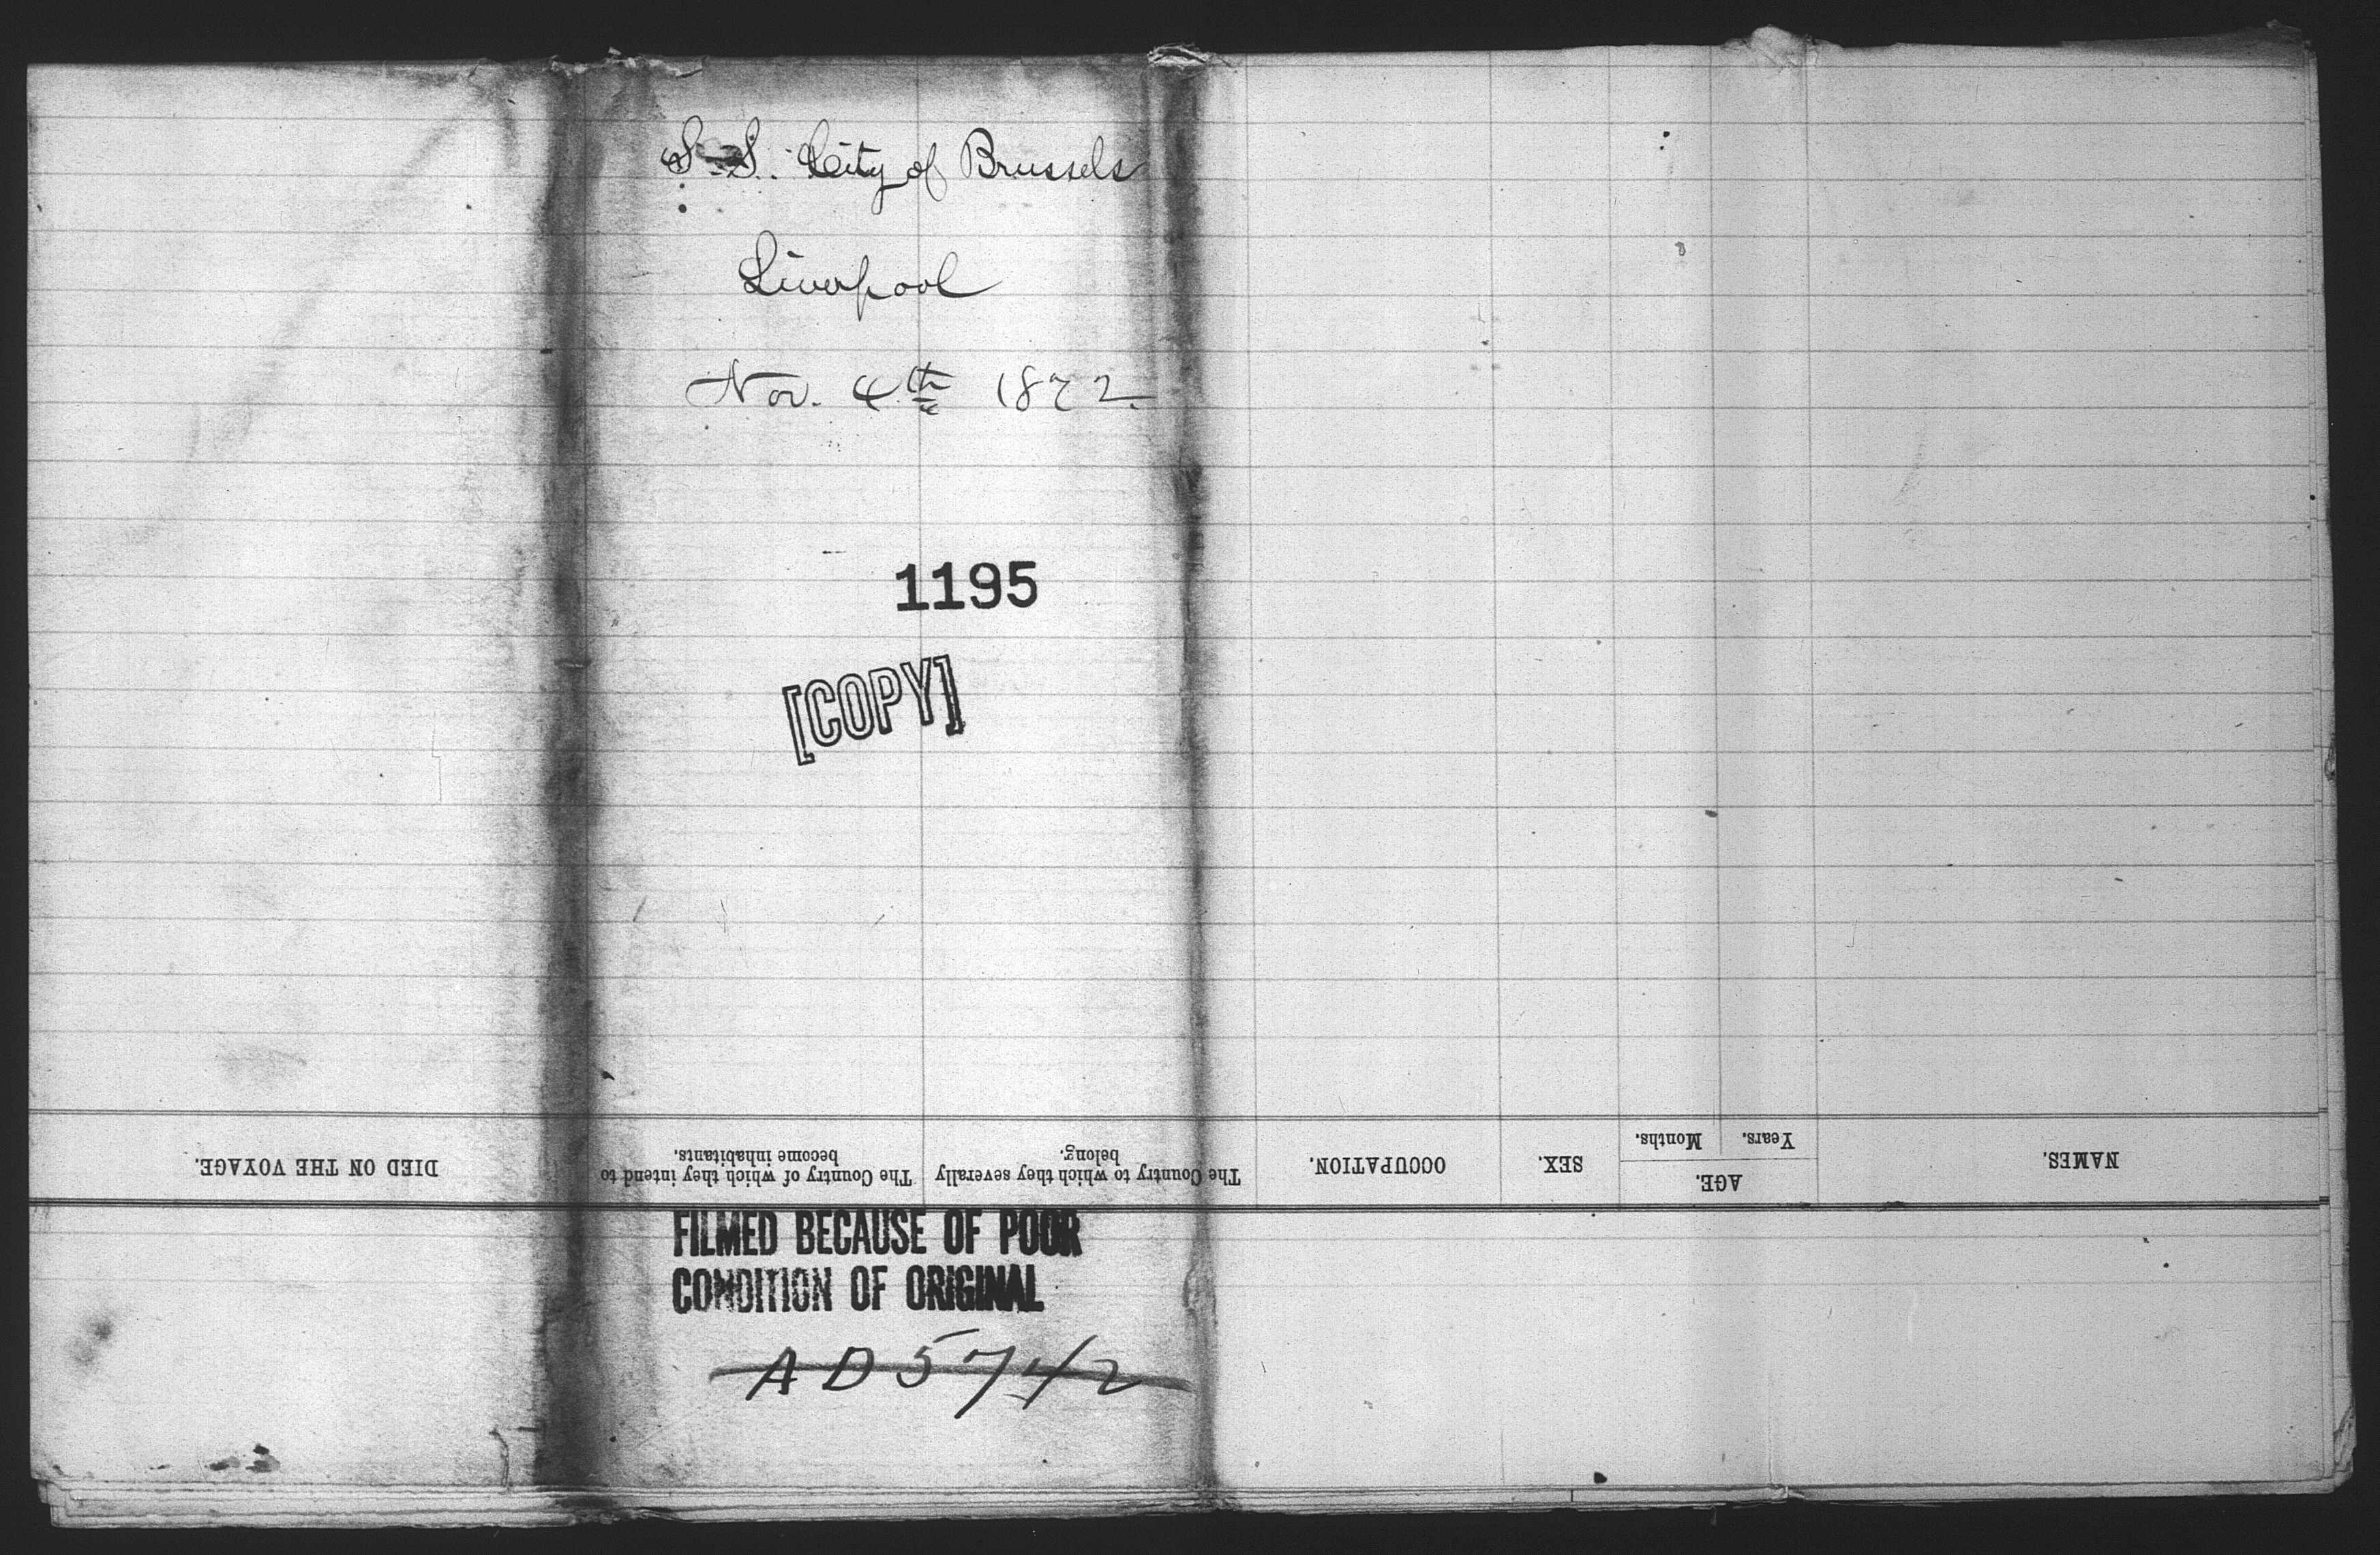 S.S. City of Brussels
Liverpool
Nov. 4th 1872.
1195
[COPY]
NAMES.
AGE.
Years.
Months.
SEX.
OCCUPATION.
The Country to which they severally
belong.
The Country of which they intend to
become inhabitants.
DIED ON THE VOYAGE.
FILMED BECAUSE OF POOR
CONDITION OF ORIGINAL
AD5742